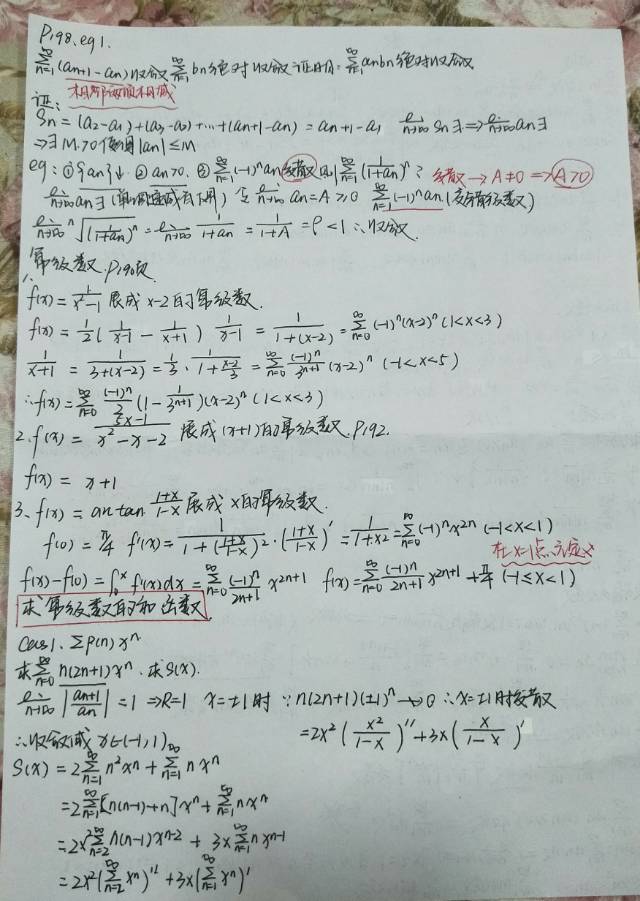 P198. eg1.
∑_{n=1}^{∞}(a_{n+1}-a_n)收敛 ∑_{n=1}^{∞}b_n绝对收敛 证明: ∑_{n=1}^{∞}a_nb_n绝对收敛
相邻两项相减
证:
S_n = (a_2-a_1)+(a_3-a_2)+…+(a_{n+1}-a_n) = a_{n+1}-a_1 lim_{n→∞} S_n ∃ ⇒ lim_{n→∞} a_n ∃
⇒ ∃ M>0 使得 |a_n| ≤ M
eg: ① {a_n}↓ ② a_n>0. ③ ∑_{n=1}^{∞}(-1)^n a_n 发散 则 ∑_{n=1}^{∞}(1/(1+a_n))^n ? 发散 → A≠0 ⇒ A>0
lim_{n→∞} a_n ∃ (单调递减有下界) 令 lim_{n→∞} a_n = A ≥ 0 ∑_{n=1}^{∞}(-1)^n a_n (交错级数)
lim_{n→∞} ⁿ√(1/(1+a_n))^n = lim_{n→∞} 1/(1+a_n) = 1/(1+A) = ρ < 1 ∴收敛.
幂级数. P190页
1. f(x) = 1/(x²-1) 展成 x-2 的幂级数.
f(x) = 1/2 (1/(x-1) - 1/(x+1)) 1/(x-1) = 1/(1+(x-2)) = ∑_{n=0}^{∞}(-1)^n(x-2)^n (1<x<3)
1/(x+1) = 1/(3+(x-2)) = 1/3 · 1/(1+(x-2)/3) = ∑_{n=0}^{∞} (-1)^n/3^{n+1} (x-2)^n (-1<x<5)
∴f(x) = ∑_{n=0}^{∞} (-1)^n/2 (1 - 1/3^{n+1})(x-2)^n (1<x<3)
2. f(x) = (5x-1)/(x²-x-2) 展成 (x+1) 的幂级数. P192.
f(x) = x+1
3. f(x) = arctan (1+x)/(1-x) 展成 x 的幂级数.
f(0) = π/4 f'(x) = 1/(1+((1+x)/(1-x))²) · ((1+x)/(1-x))' = 1/(1+x²) = ∑_{n=0}^{∞}(-1)^n x^{2n} (-1<x<1)
在x=1点无定义
f(x)-f(0) = ∫_0^x f'(x)dx = ∑_{n=0}^{∞} (-1)^n/(2n+1) x^{2n+1} f(x) = ∑_{n=0}^{∞} (-1)^n/(2n+1) x^{2n+1} + π/4 (-1≤x<1)
求幂级数的和函数
Cas1. ∑P(n)x^n
求 ∑_{n=0}^{∞} n(2n+1)x^n. 求S(x).
lim_{n→∞} |a_{n+1}/a_n| = 1 ⇒ R=1 x=±1时 ∵ n(2n+1)(±1)^n ↛ 0 ∴ x=±1时发散
∴收敛域 x∈(-1,1)
= 2x² (x²/(1-x))'' + 3x (x/(1-x))'
S(x) = 2∑_{n=1}^{∞} n²x^n + ∑_{n=1}^{∞} n x^n
= 2∑_{n=1}^{∞} [n(n-1)+n]x^n + ∑_{n=1}^{∞} n x^n
= 2x²∑_{n=2}^{∞} n(n-1)x^{n-2} + 3x∑_{n=1}^{∞} n x^{n-1}
= 2x²(∑_{n=2}^{∞} x^n)'' + 3x(∑_{n=1}^{∞} x^n)'